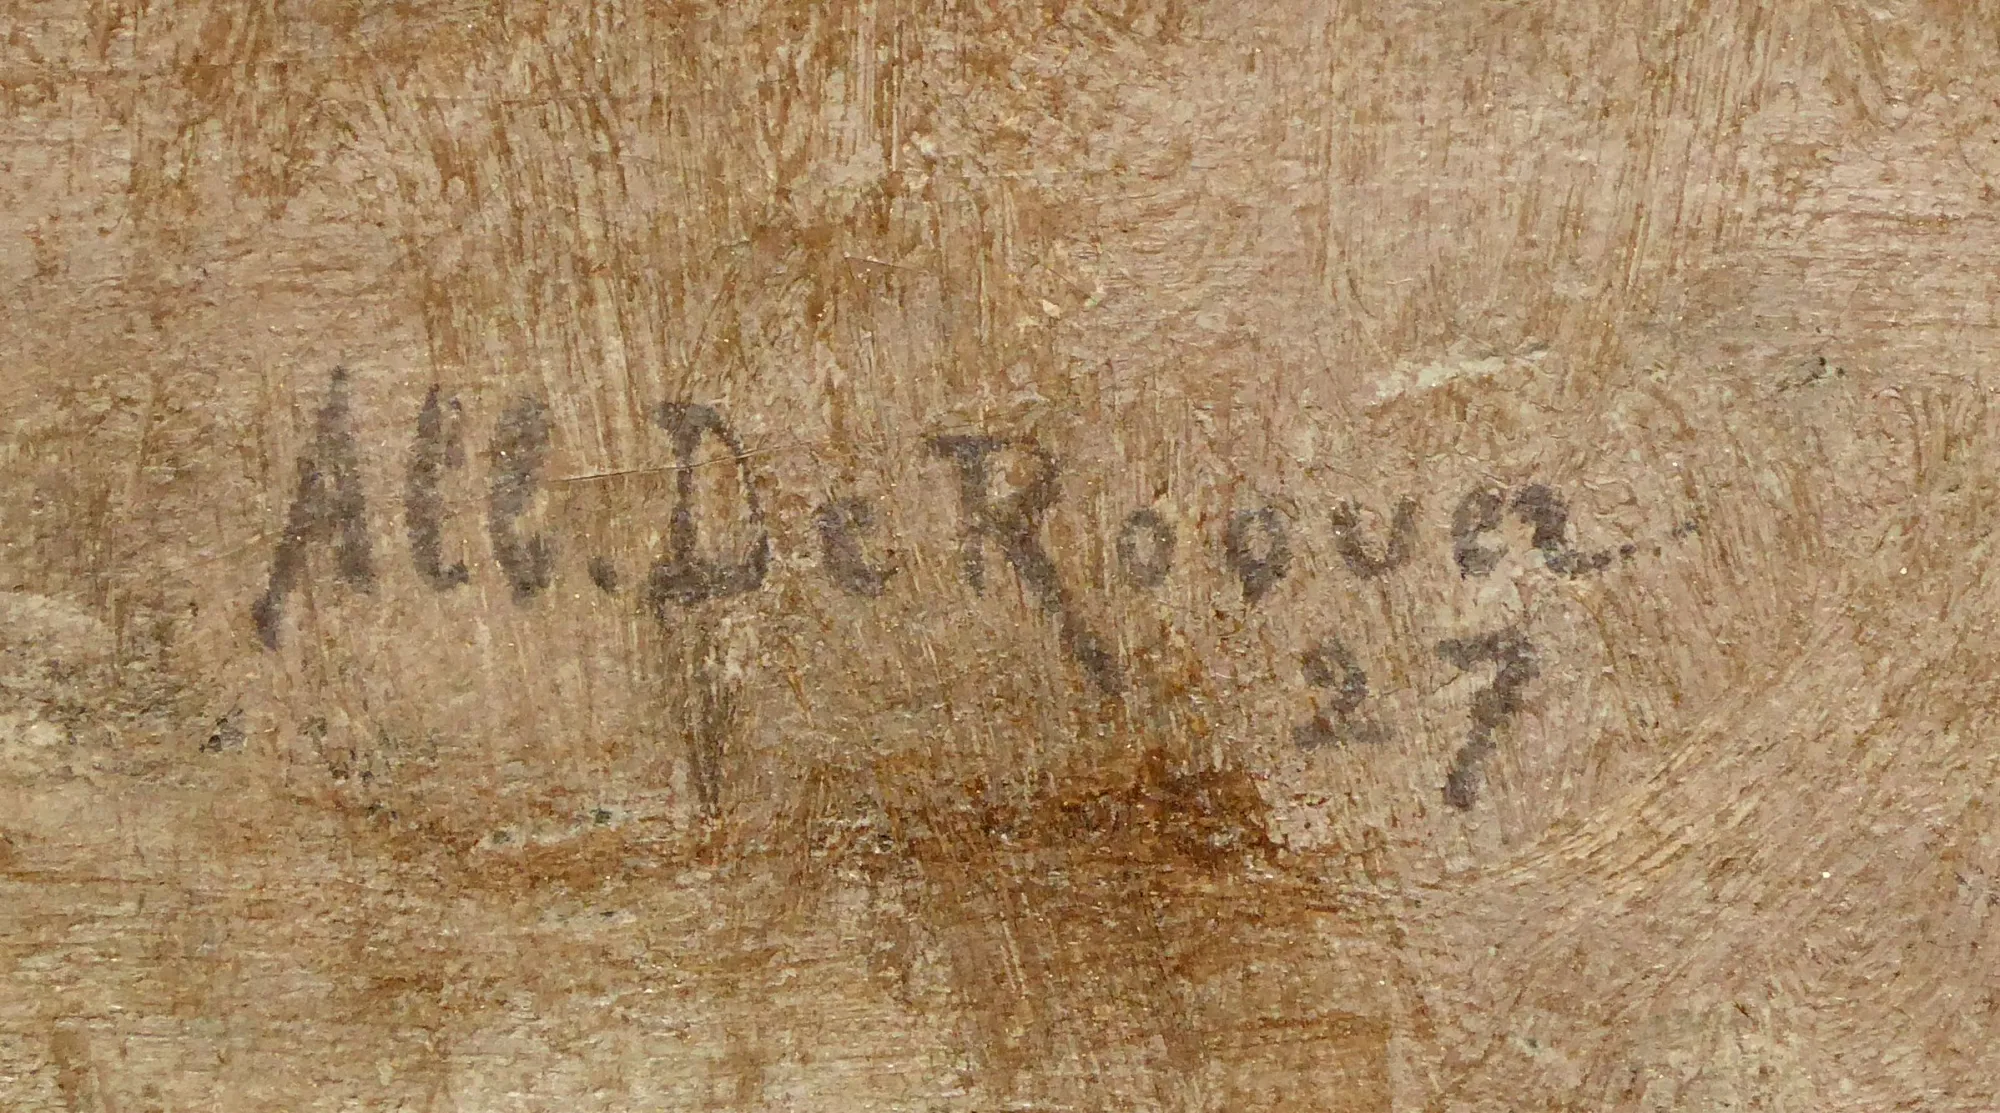 Alb. De Roover.
27